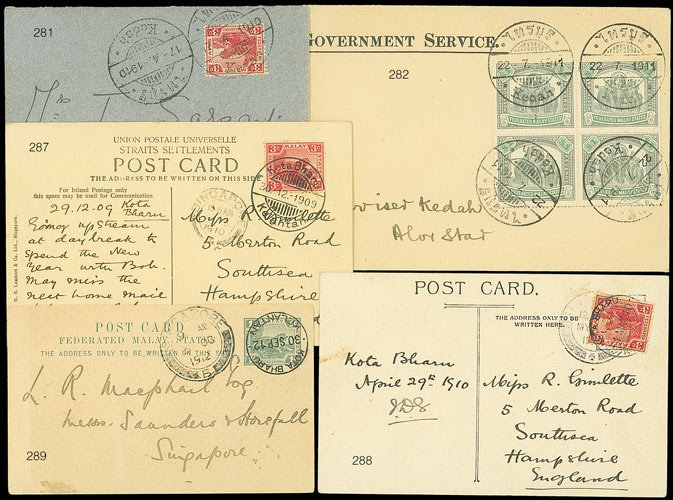 281
Kedah
17.4.1910
Mrs
GOVERNMENT SERVICE.
282
ไทรบุรี
22.7.1911
Kedah
ไทรบุรี
22.7.1911
FEDERATED MALAY STATES
FEDERATED MALAY STATES
Kedah
Kedah
Adviser Kedah
Alor Star
287
UNION POSTALE UNIVERSELLE
STRAITS SETTLEMENTS
POST CARD
THE ADDRESS TO BE WRITTEN ON THIS SIDE
For Inland Postage only
this space may be used for Communication
MALAY
Kota Bharu
30.12.1909
Kelantan
SINGAPORE
29.12.09 Kota
Bharu
Going upstream
at daybreak to
spend the New
Year with Bob.
May miss the
next home mail
Miss R. Gimlette
5 Merton Road
Southsea
Hampshire
POST CARD
FEDERATED MALAY STATES
THE ADDRESS ONLY TO BE WRITTEN ON THIS SIDE
KOTA BHARU
30 SEP 12
KELANTAN
L. R. Macphail Esq
Messrs Saunders & Horsfall
Singapore
289
POST CARD.
THE ADDRESS ONLY TO BE
WRITTEN HERE.
KOTA BHARU
Kota Bharu
April 29th 1910
Miss R. Gimlette
5 Merton Road
Southsea
Hampshire
England
288